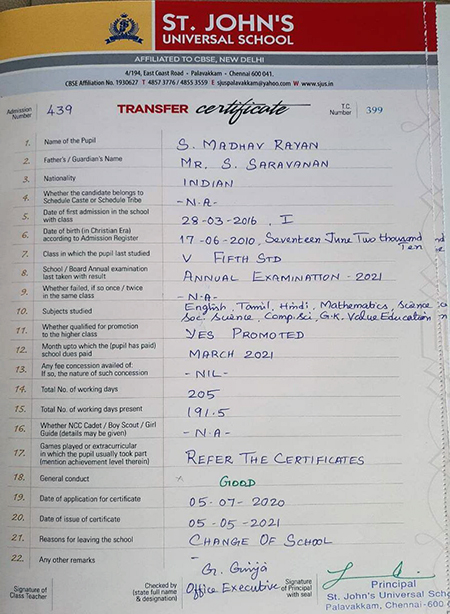 ST. JOHN'S
UNIVERSAL SCHOOL
AFFILIATED TO CBSE, NEW DELHI
4/194, East Coast Road - Palavakkam - Chennai 600 041.
CBSE Affiliation No. 1930627 T 4857 3776 / 4855 3559 E sjuspalavakkam@yahoo.com W www.sjus.in
Admission Number 439 TRANSFER certificate T.C. Number 399
1. Name of the Pupil S. MADHAV RAYAN
2. Father's / Guardian's Name MR. S. SARAVANAN
3. Nationality INDIAN
4. Whether the candidate belongs to Schedule Caste or Schedule Tribe -N.A-
5. Date of first admission in the school with class 28-03-2016, I
6. Date of birth (in Christian Era) according to Admission Register 17-06-2010, Seventeen June Two thousand Ten
7. Class in which the pupil last studied V FIFTH STD
8. School / Board Annual examination last taken with result ANNUAL EXAMINATION - 2021
9. Whether failed, if so once / twice in the same class -N.A-
10. Subjects studied English, Tamil, Hindi, Mathematics, Science
Soc. Science, Comp.Sci, G.K. Value Education
11. Whether qualified for promotion to the higher class YES PROMOTED
12. Month upto which the (pupil has paid) school dues paid MARCH 2021
13. Any fee concession availed of: If so, the nature of such concession -NIL-
14. Total No. of working days 205
15. Total No. of working days present 191.5
16. Whether NCC Cadet / Boy Scout / Girl Guide (details may be given) -N.A-
17. Games played or extracurricular in which the pupil usually took part (mention achievement level therein) REFER THE CERTIFICATES
18. General conduct GOOD
19. Date of application for certificate 05-07-2020
20. Date of issue of certificate 05-05-2021
21. Reasons for leaving the school CHANGE OF SCHOOL
22. Any other remarks -
G. Girija
Signature of Class Teacher Checked by (state full name & designation) Office Executive Signature of Principal with seal
Principal
St. John's Universal Scho
Palavakkam, Chennai-600